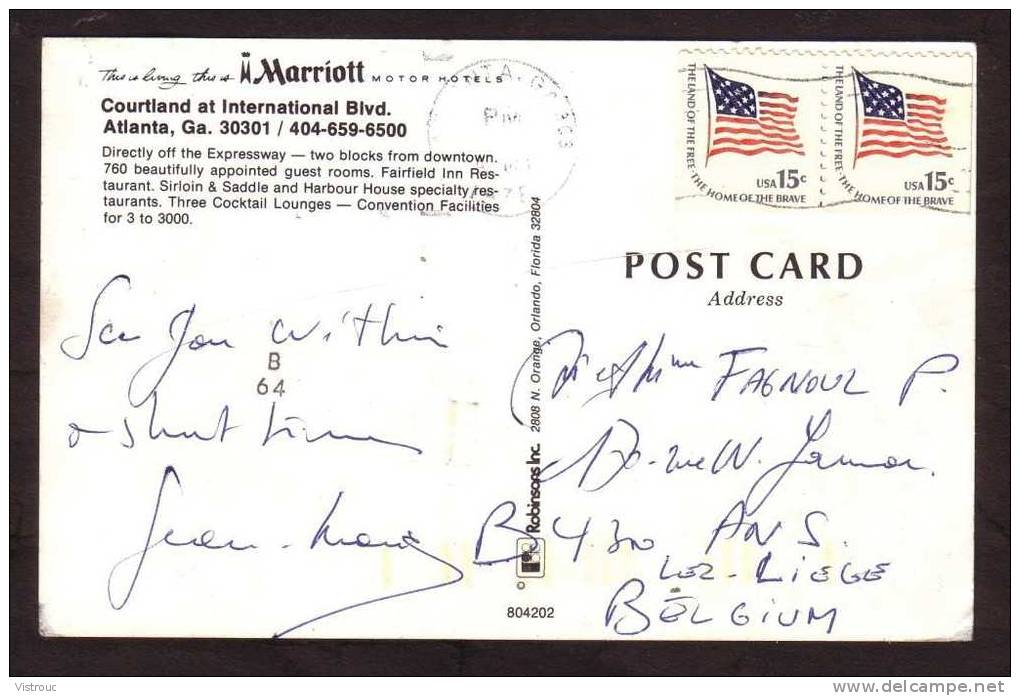 This is living this is Marriott MOTOR HOTELS
Courtland at International Blvd.
Atlanta, Ga. 30301 / 404-659-6500
Directly off the Expressway — two blocks from downtown.
760 beautifully appointed guest rooms. Fairfield Inn Res-
taurant. Sirloin & Saddle and Harbour House specialty res-
taurants. Three Cocktail Lounges — Convention Facilities
for 3 to 3000.
PM
THE LAND OF THE FREE·THE HOME OF THE BRAVE
USA 15c
THE LAND OF THE FREE·THE HOME OF THE BRAVE
USA 15c
See you within
B
64
a short time
Jean-Marie
Robinsons Inc. 2808 N. Orange, Orlando, Florida 32804
804202
POST CARD
Address
Mr et Mme FAGNOUL P.
B 4300 ANS
LEZ-LIEGE
BELGIUM
Vistrouc
www.delcampe.net